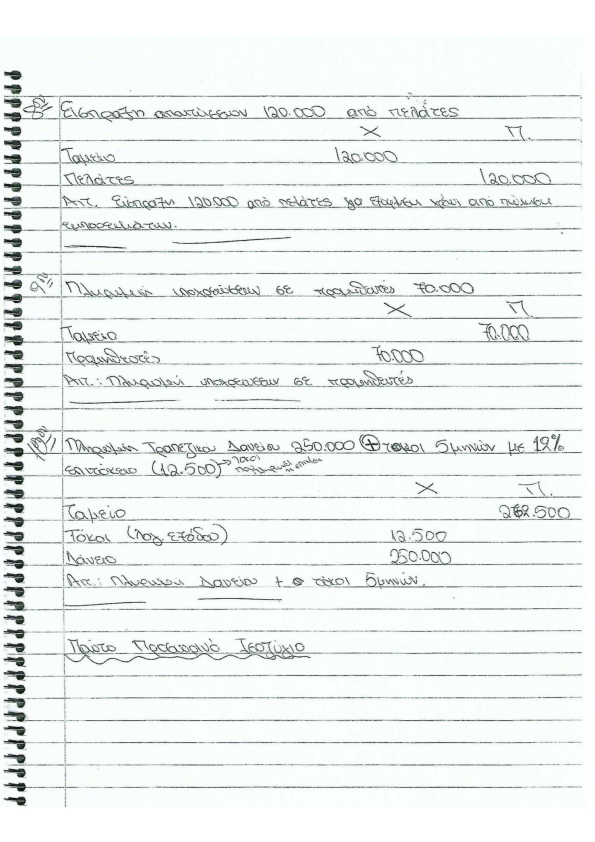 8η Είσπραξη απαιτήσεων 120.000 από πελάτες
Χ Π.
Ταμείο 120.000
Πελάτες 120.000
Αιτ. Είσπραξη 120.000 από πελάτες για εξόφληση χρέους από πώληση
εμπορευμάτων.
9η Πληρωμή υποχρεώσεων σε προμηθευτές 70.000
Χ Π.
Ταμείο 70.000
Προμηθευτές 70.000
Αιτ.: Πληρωμή υποχρεώσεων σε προμηθευτές
10η Πληρωμή Τραπεζικού Δανείου 250.000 + τόκοι 5μηνών με 12%
επιτόκειο (12.500) → τόκοι
Χ Π.
Ταμείο 262.500
Τόκοι (λογ. εξόδου) 12.500
Δάνειο 250.000
Αιτ.: Πληρωμή Δανείου + τόκοι 5μηνών.
Πρώτο Προσωρινό Ισοζύγιο